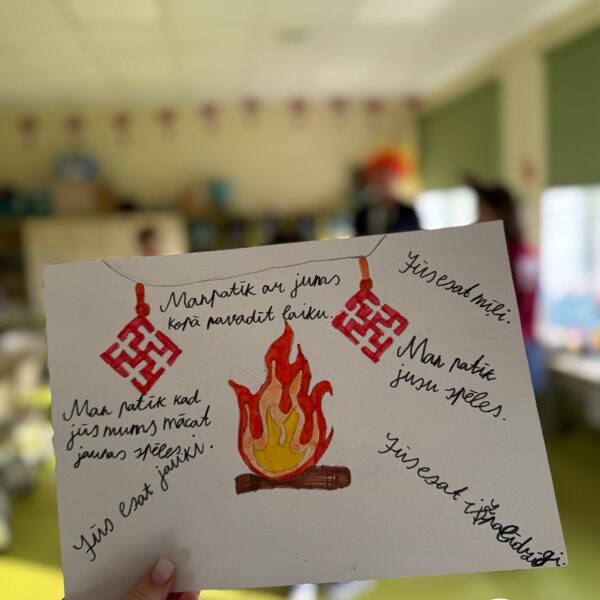 Man patīk ar jums
kopā pavadīt laiku.
Jūs esat mīļi.
Man patīk
jusu spēles.
Man patīk kad
jūs mums mācat
jaunas spēles.
Jūs esat jauki.
Jūs esat izpalīdzīgi.